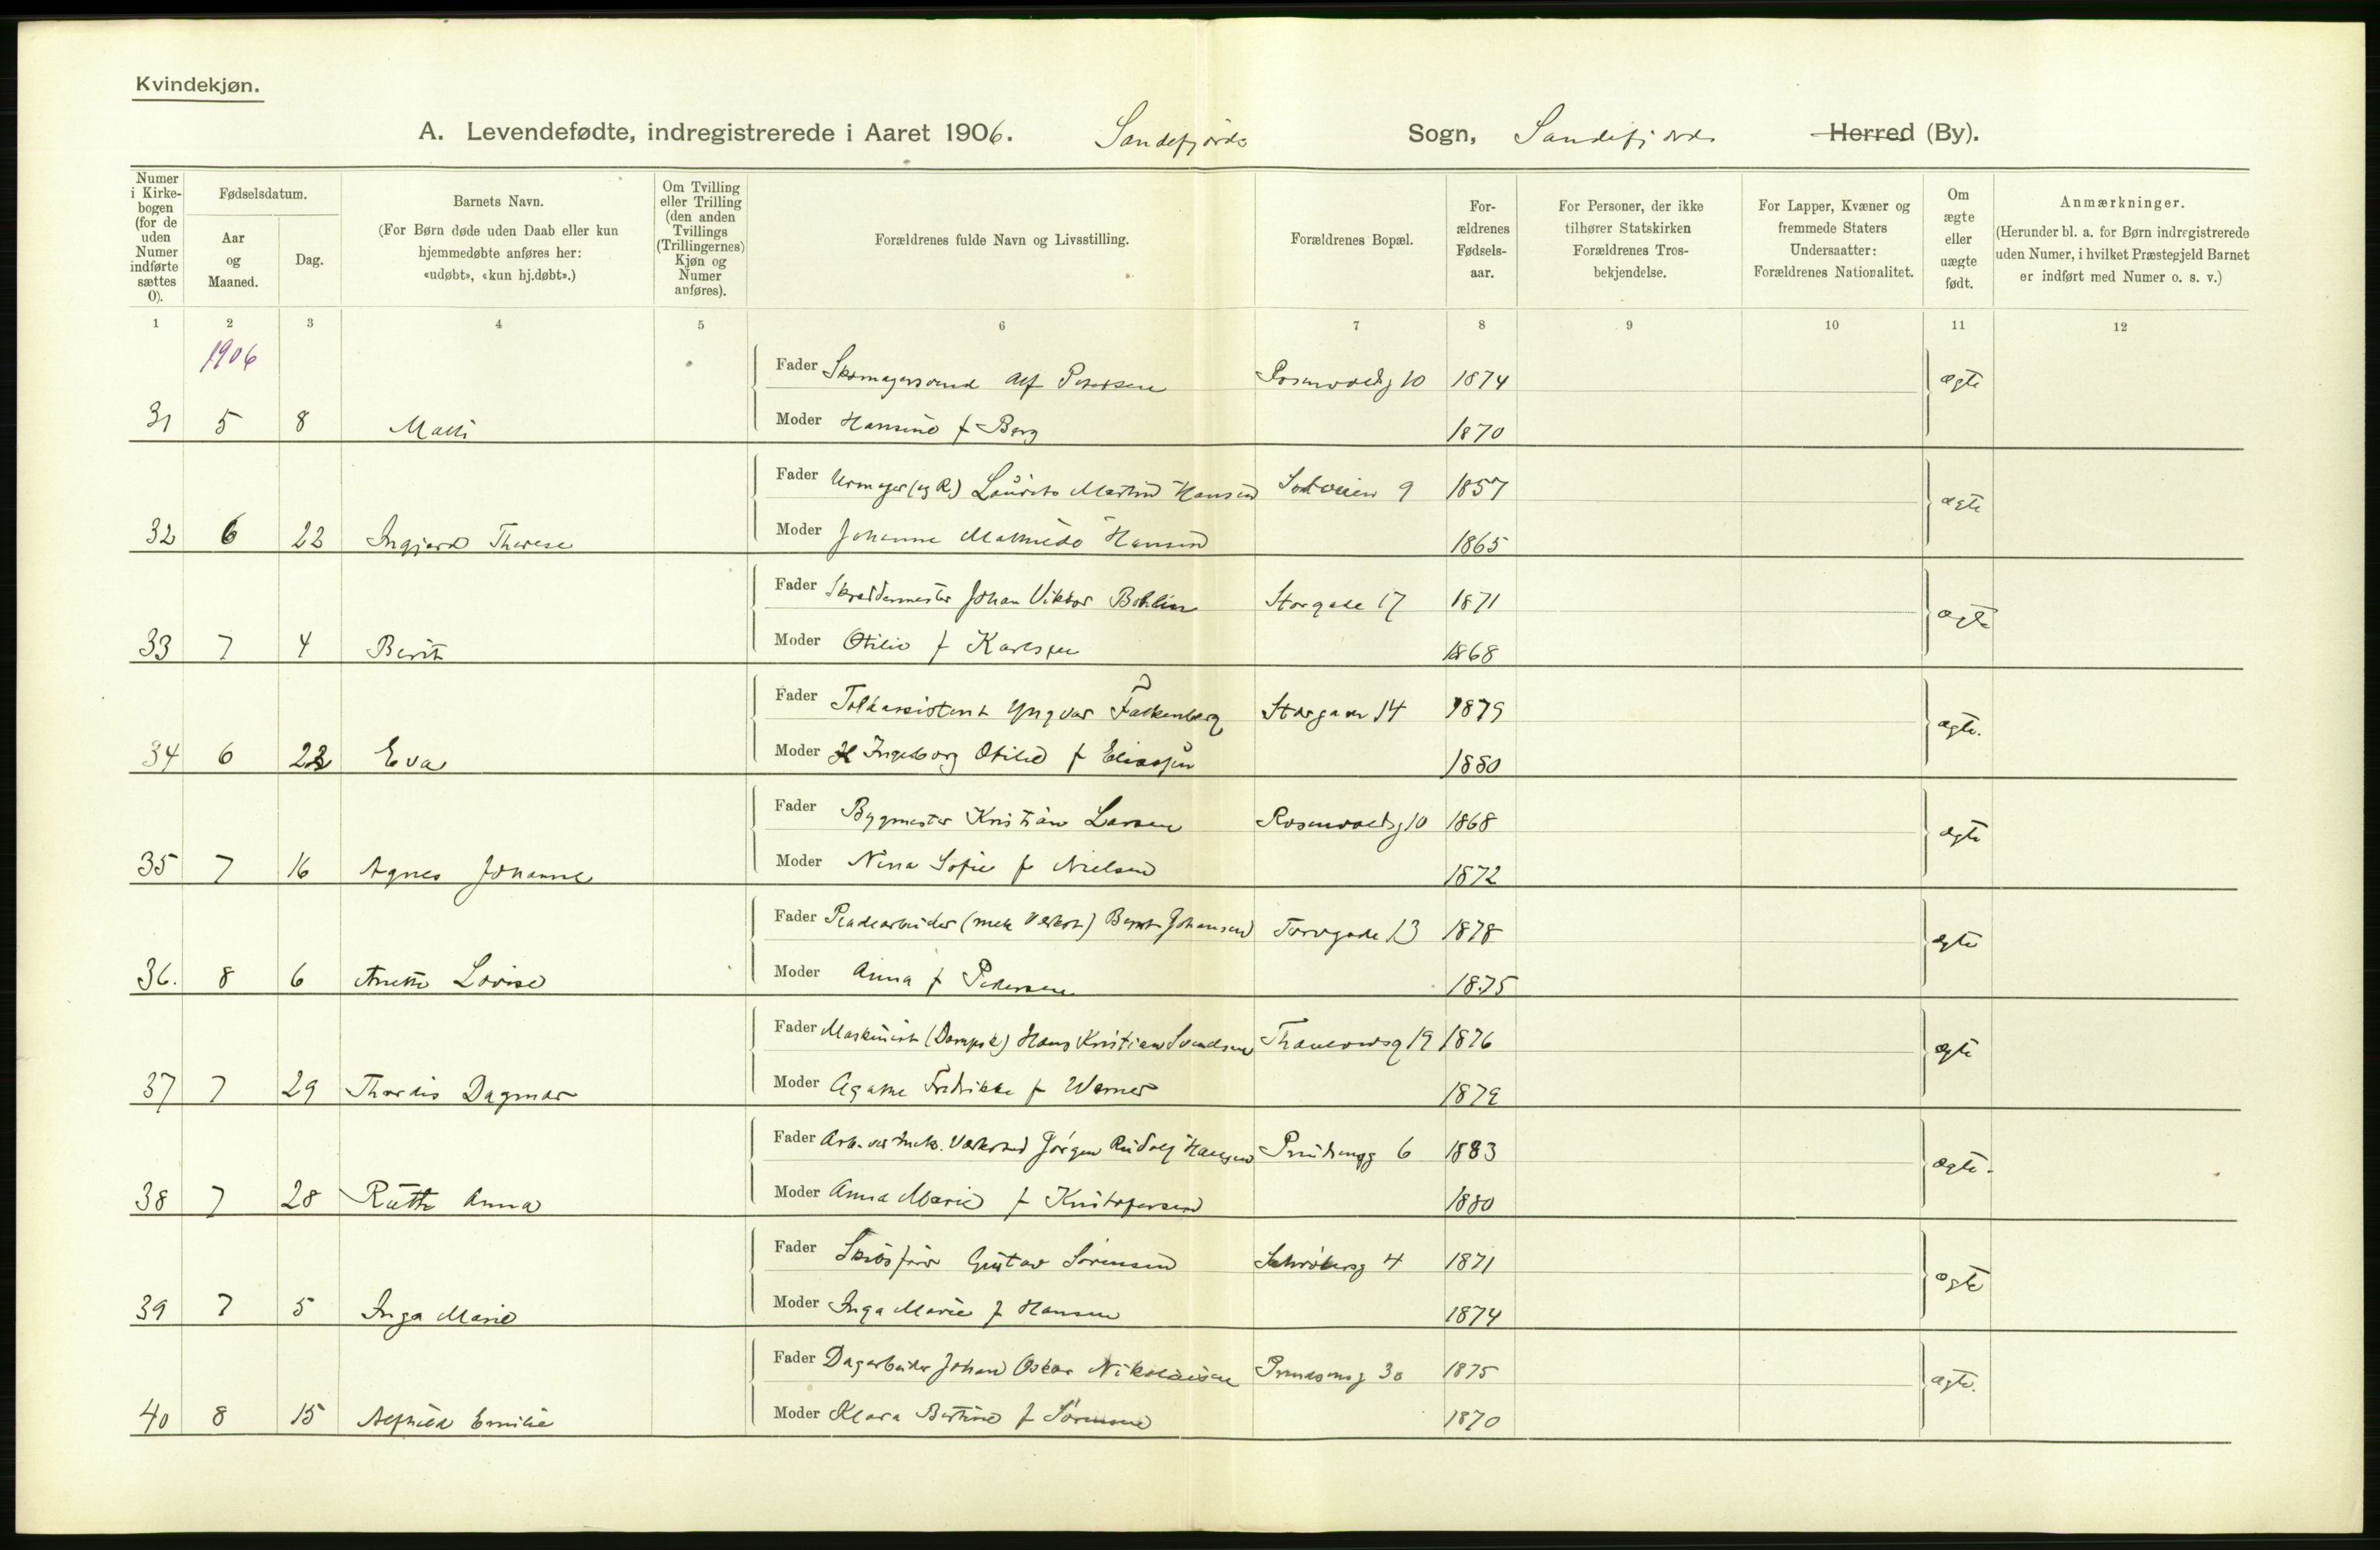 Kvindekjøn.
A. Levendefødte, indregistrerede i Aaret 1906. Sandefjords Sogn, Sandefjords Herred (By).
Numer i Kirkebogen (for de uden Numer indførte sættes 0).
Fødselsdatum.
Aar og Maaned.
Dag.
Barnets Navn.
(For Børn døde uden Daab eller kun hjemmedøbte anføres her: «udøbt», «kun hj.døbt».)
Om Tvilling eller Trilling (den anden Tvillings (Trillingernes) Kjøn og Numer anføres).
Forældrenes fulde Navn og Livsstilling.
Forældrenes Bopæl.
Forældrenes Fødselsaar.
For Personer, der ikke tilhører Statskirken Forældrenes Trosbekjendelse.
For Lapper, Kvæner og fremmede Staters Undersaatter: Forældrenes Nationalitet.
Om ægte eller uægte født.
Anmærkninger.
(Herunder bl. a. for Børn indregistrerede uden Numer, i hvilket Præstegjeld Barnet er indført med Numer o. s. v.)
1 2 3 4 5 6 7 8 9 10 11 12
1906
Fader Skomagersvend Alf Pettersen Rosenvoldsg 10 1874 ægte
31 5 8 Moder Hansine f Berg 1870
Fader Urmager (eg R.) Laurits Martin Hansen 9 1857 ægte
32 6 22 Ingjerd Therese Moder Johanne Mathilde Hansen 1865
Fader Skræddermester Johan Viktor Bohlin Storgade 17 1871 ægte
33 7 4 Berit Moder Otilie f Karlsen 1868
Fader Toldassistent Yngvar Falkenberg Storgaden 14 1879 ægte.
34 6 22 Eva Moder Ingeborg Otilie f Eliassen 1880
Fader Bygmester Kristian Larsen Rosenvoldsg 10 1868 ægte
35 7 16 Agnes Johanne Moder Nina Sofie f Nielsen 1872
Fader Pladearbeider (mek Værkst) Bernt Johansen Torvgade 13 1878 ægte
36. 8 6 Anette Lovise Moder Anna f Pedersen 1875
Fader Maskinist (Dampsk) Hans Kristian Svendsen Thaulowsg 19 1876 ægte
37 7 29 Thordis Dagmar Moder Agathe Fredrikke f Werner 1879
Fader Arb. ved mek. Værksted Jørgen Rudolf Hansen Prindsensg 6 1883 ægte.
38 7 28 Ruth Anna Moder Anna Marie f Kristofersen 1880
Fader Skibsfører Gustav Sørensen 4 1871 ægte
39 7 5 Inga Marie Moder Inga Marie f Hansen 1874
Fader Dagarbeider Johan Oskar Nikolaisen Prindsensg 30 1875 ægte.
40 8 15 Alfhild Emilie Moder Klara Bertine f Sørensen 1870